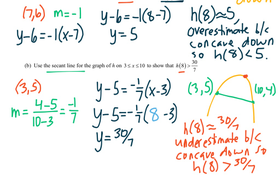 (7,6) m=-1
y-6=-1(x-7)
y-6=-1(8-7)
y=5
h(8)≈5,
overestimate b/c
concave down
so h(8)<5.
(b) Use the secant line for the graph of h on 3 ≤ x ≤ 10 to show that h(8) > 30/7
(3,5)
m = (4-5)/(10-3) = -1/7
y-5=-1/7(x-3)
y-5=-1/7(8-3)
y=30/7
(3,5)
(10,4)
h(8)≈30/7
underestimate b/c
concave down so
h(8)>30/7